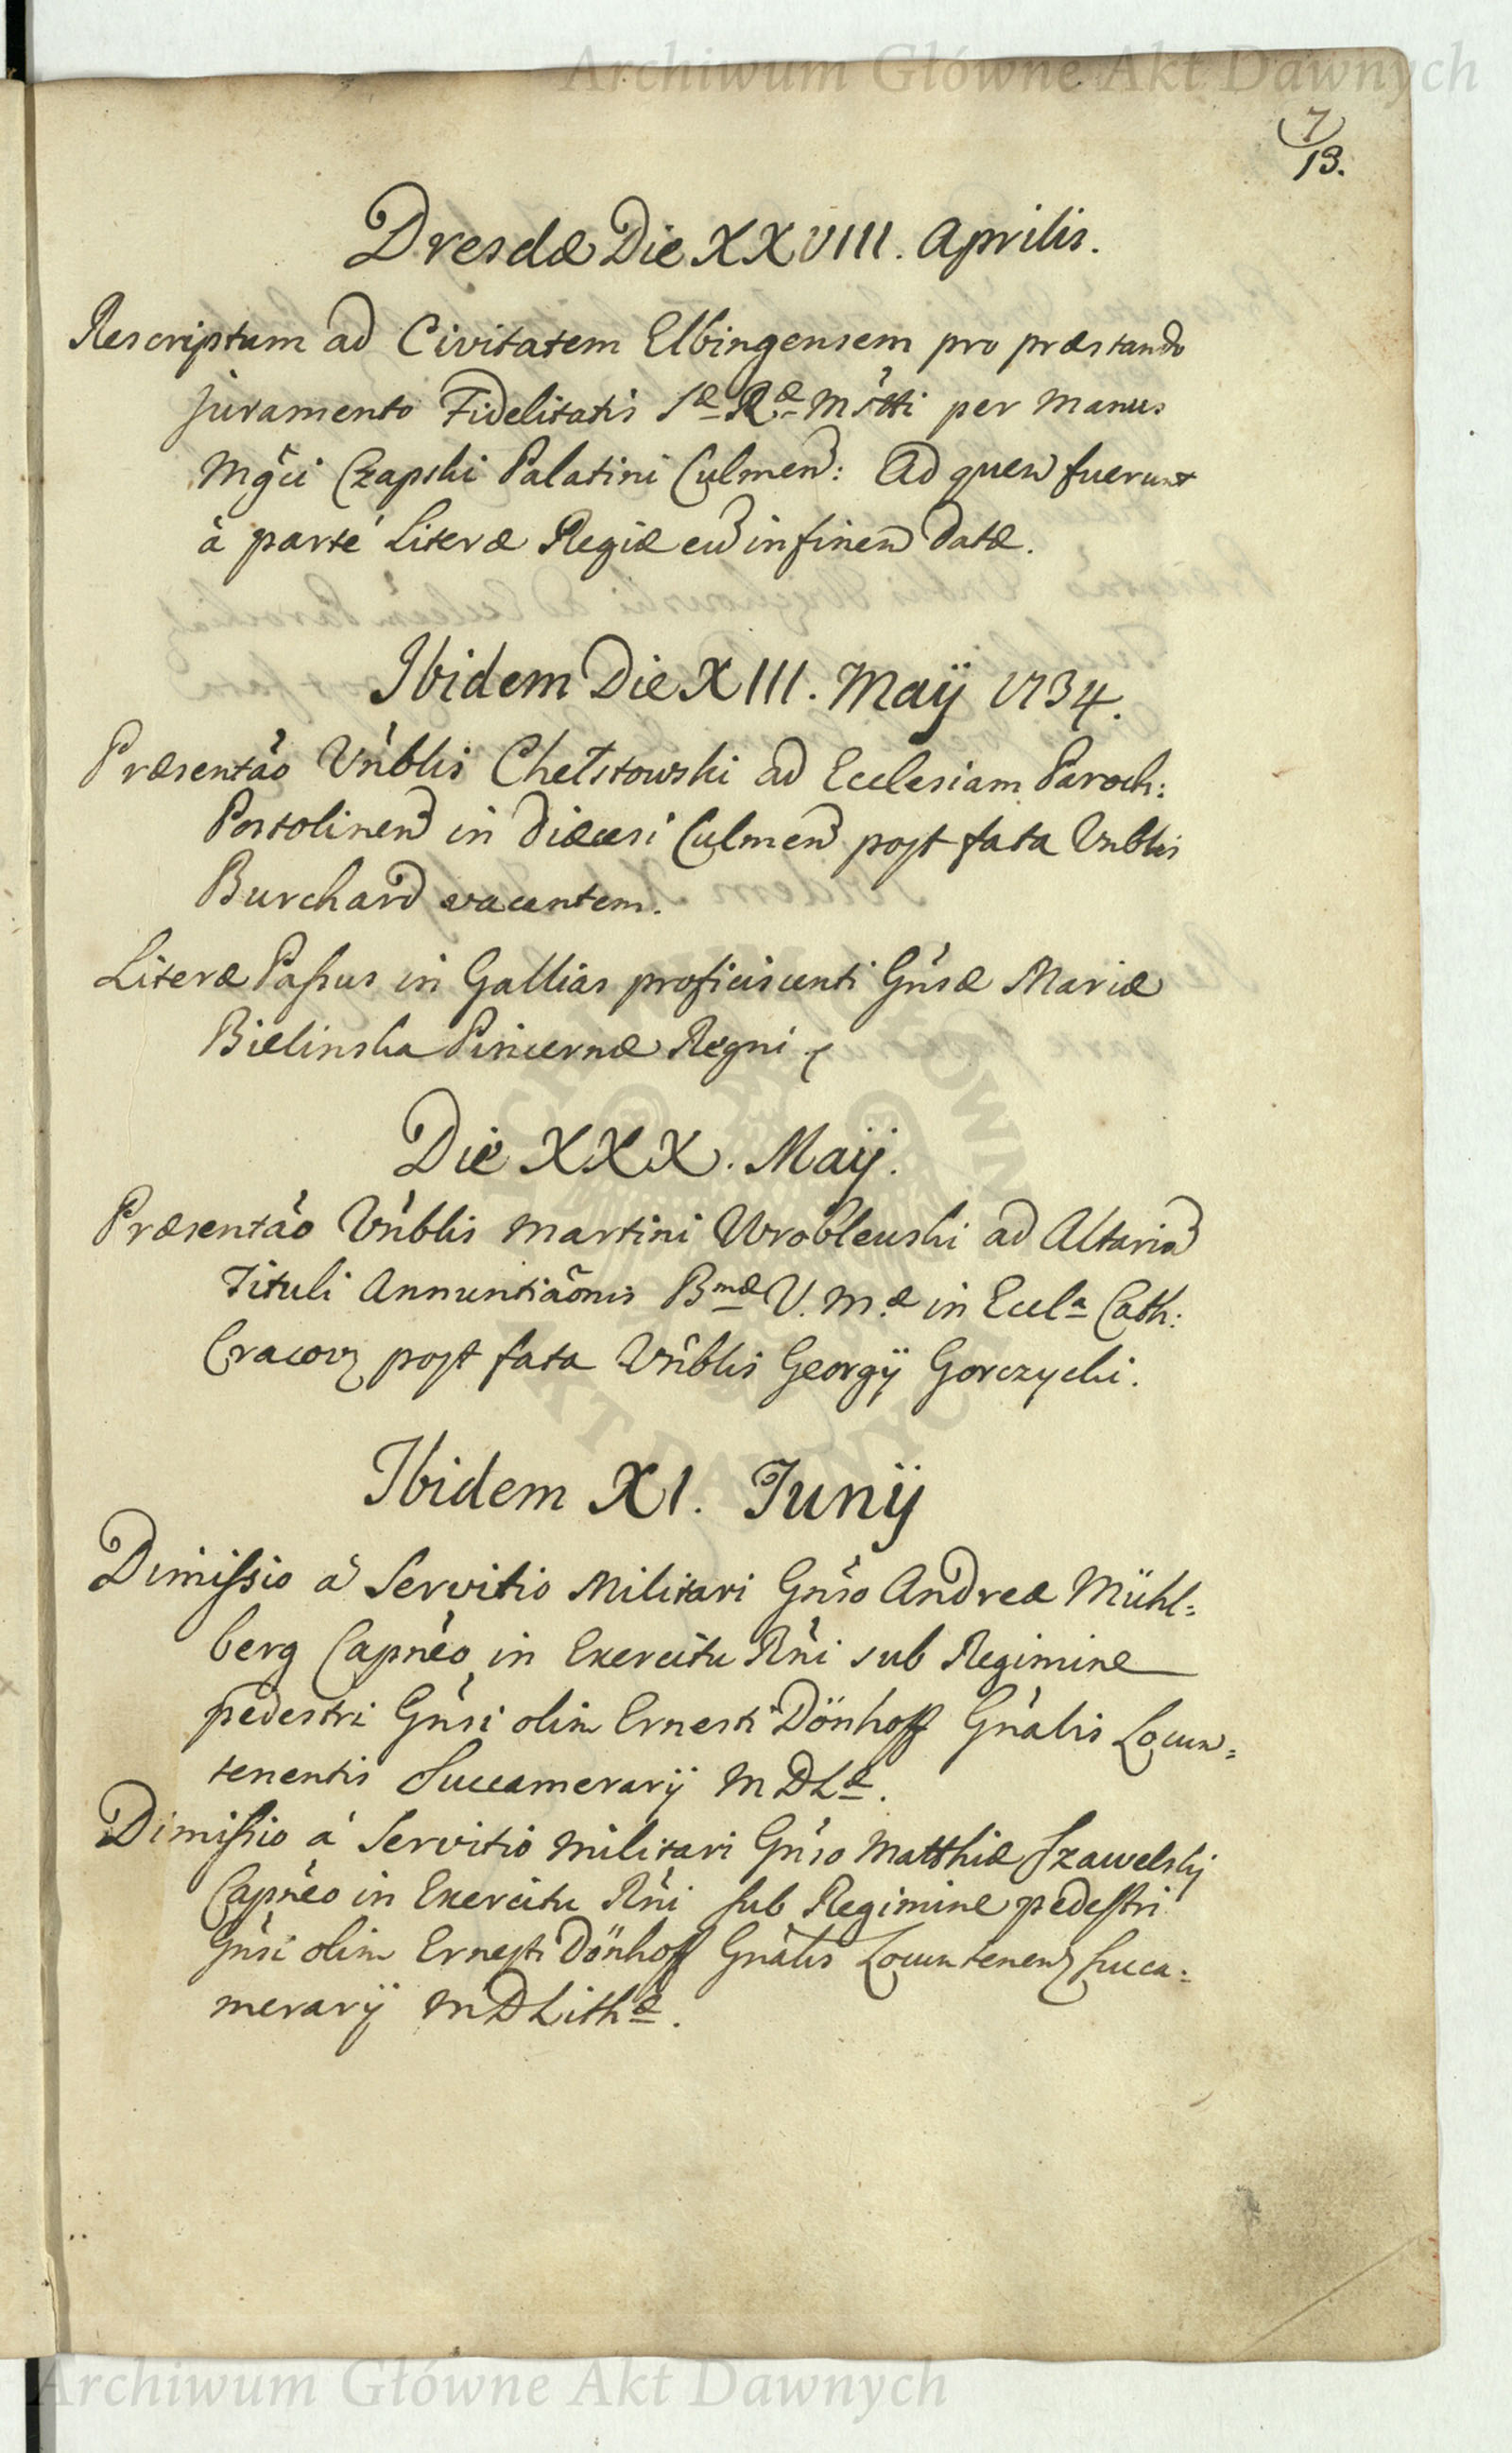 Archiwum Główne Akt Dawnych
7
13.
Dresdæ Die XXVIII. Aprilis.
Rescriptum ad Civitatem Elbingensem pro præstando
juramento Fidelitatis Sæ Ræ Mștti per manus
Mgci Czapski Palatini Culmen: Ad quem fuerunt
à parte Literæ Regiæ eum in finem datæ.
Ibidem Die XIII. Maÿ 1734.
Præsentão Vnblis Chełstowski ad Ecclesiam Paroch:
Postolinen in Diæcesi Culmen post fata Vnblis
Burchard vacantem.
Literæ Passus in Gallias proficiscenti Gnsæ Mariæ
Bielinska Pincernæ Regni
Die XXX. Maij.
Præsentão Vnblis Martini Wroblewski ad Altaria
Tituli Annuntiaõnis Bmæ V. Mæ in Eccla Cath:
Cracov post fata Vnblis Georgÿ Gorczycki.
Ibidem XI. Junÿ
Dimissio a Servitio Militari Gnso Andreæ Mühl=
berg Capneo in Exercitu Rni sub Regimine
pedestri Gnsi olim Ernesti Dönhoff Gnalis Locum=
tenentis Succamerarÿ MDLæ.
Dimissio a Servitio Militari Gnso Matthiæ Szawelskij
Capneo in Exercitu Rni sub Regimine pedestri
Gnsi olim Ernesti Dönhoff Gnalis Locumtenen Succa=
merarÿ MDLithæ.
ARCHIWUM GŁÓWNE AKT DAWNYCH
Archiwum Główne Akt Dawnych